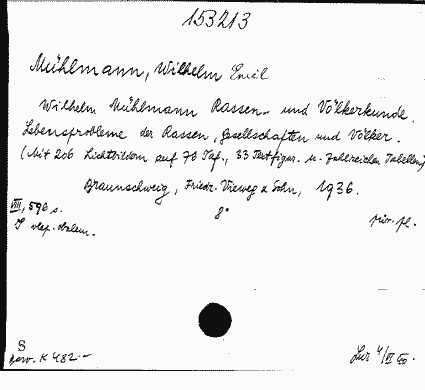 153213
Mühlmann, Wilhelm Emil
Wilhelm Mühlmann Rassen- und Völkerkunde.
Lebensprobleme der Rassen, Gesellschaften und Völker.
(Mit 206 Lichtbildern auf 70 Taf., 33 Textfigur. u. zahlreichen Tabellen)
Braunschweig, Friedr. Vieweg & Sohn, 1936.
VIII, 590 s. 8°
S
K 482.-